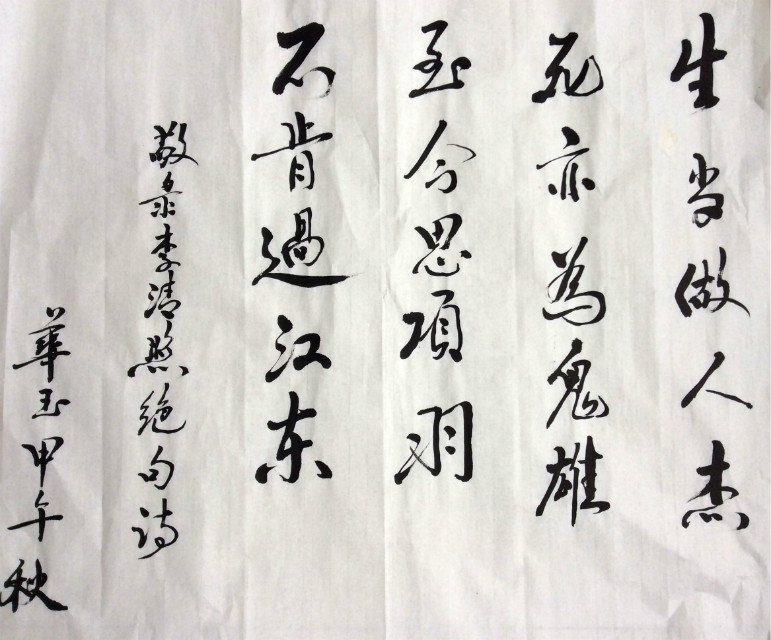 生当做人杰
死亦為鬼雄
至今思項羽
不肯過江东
敬录李清照絶句诗
華玉甲午秋